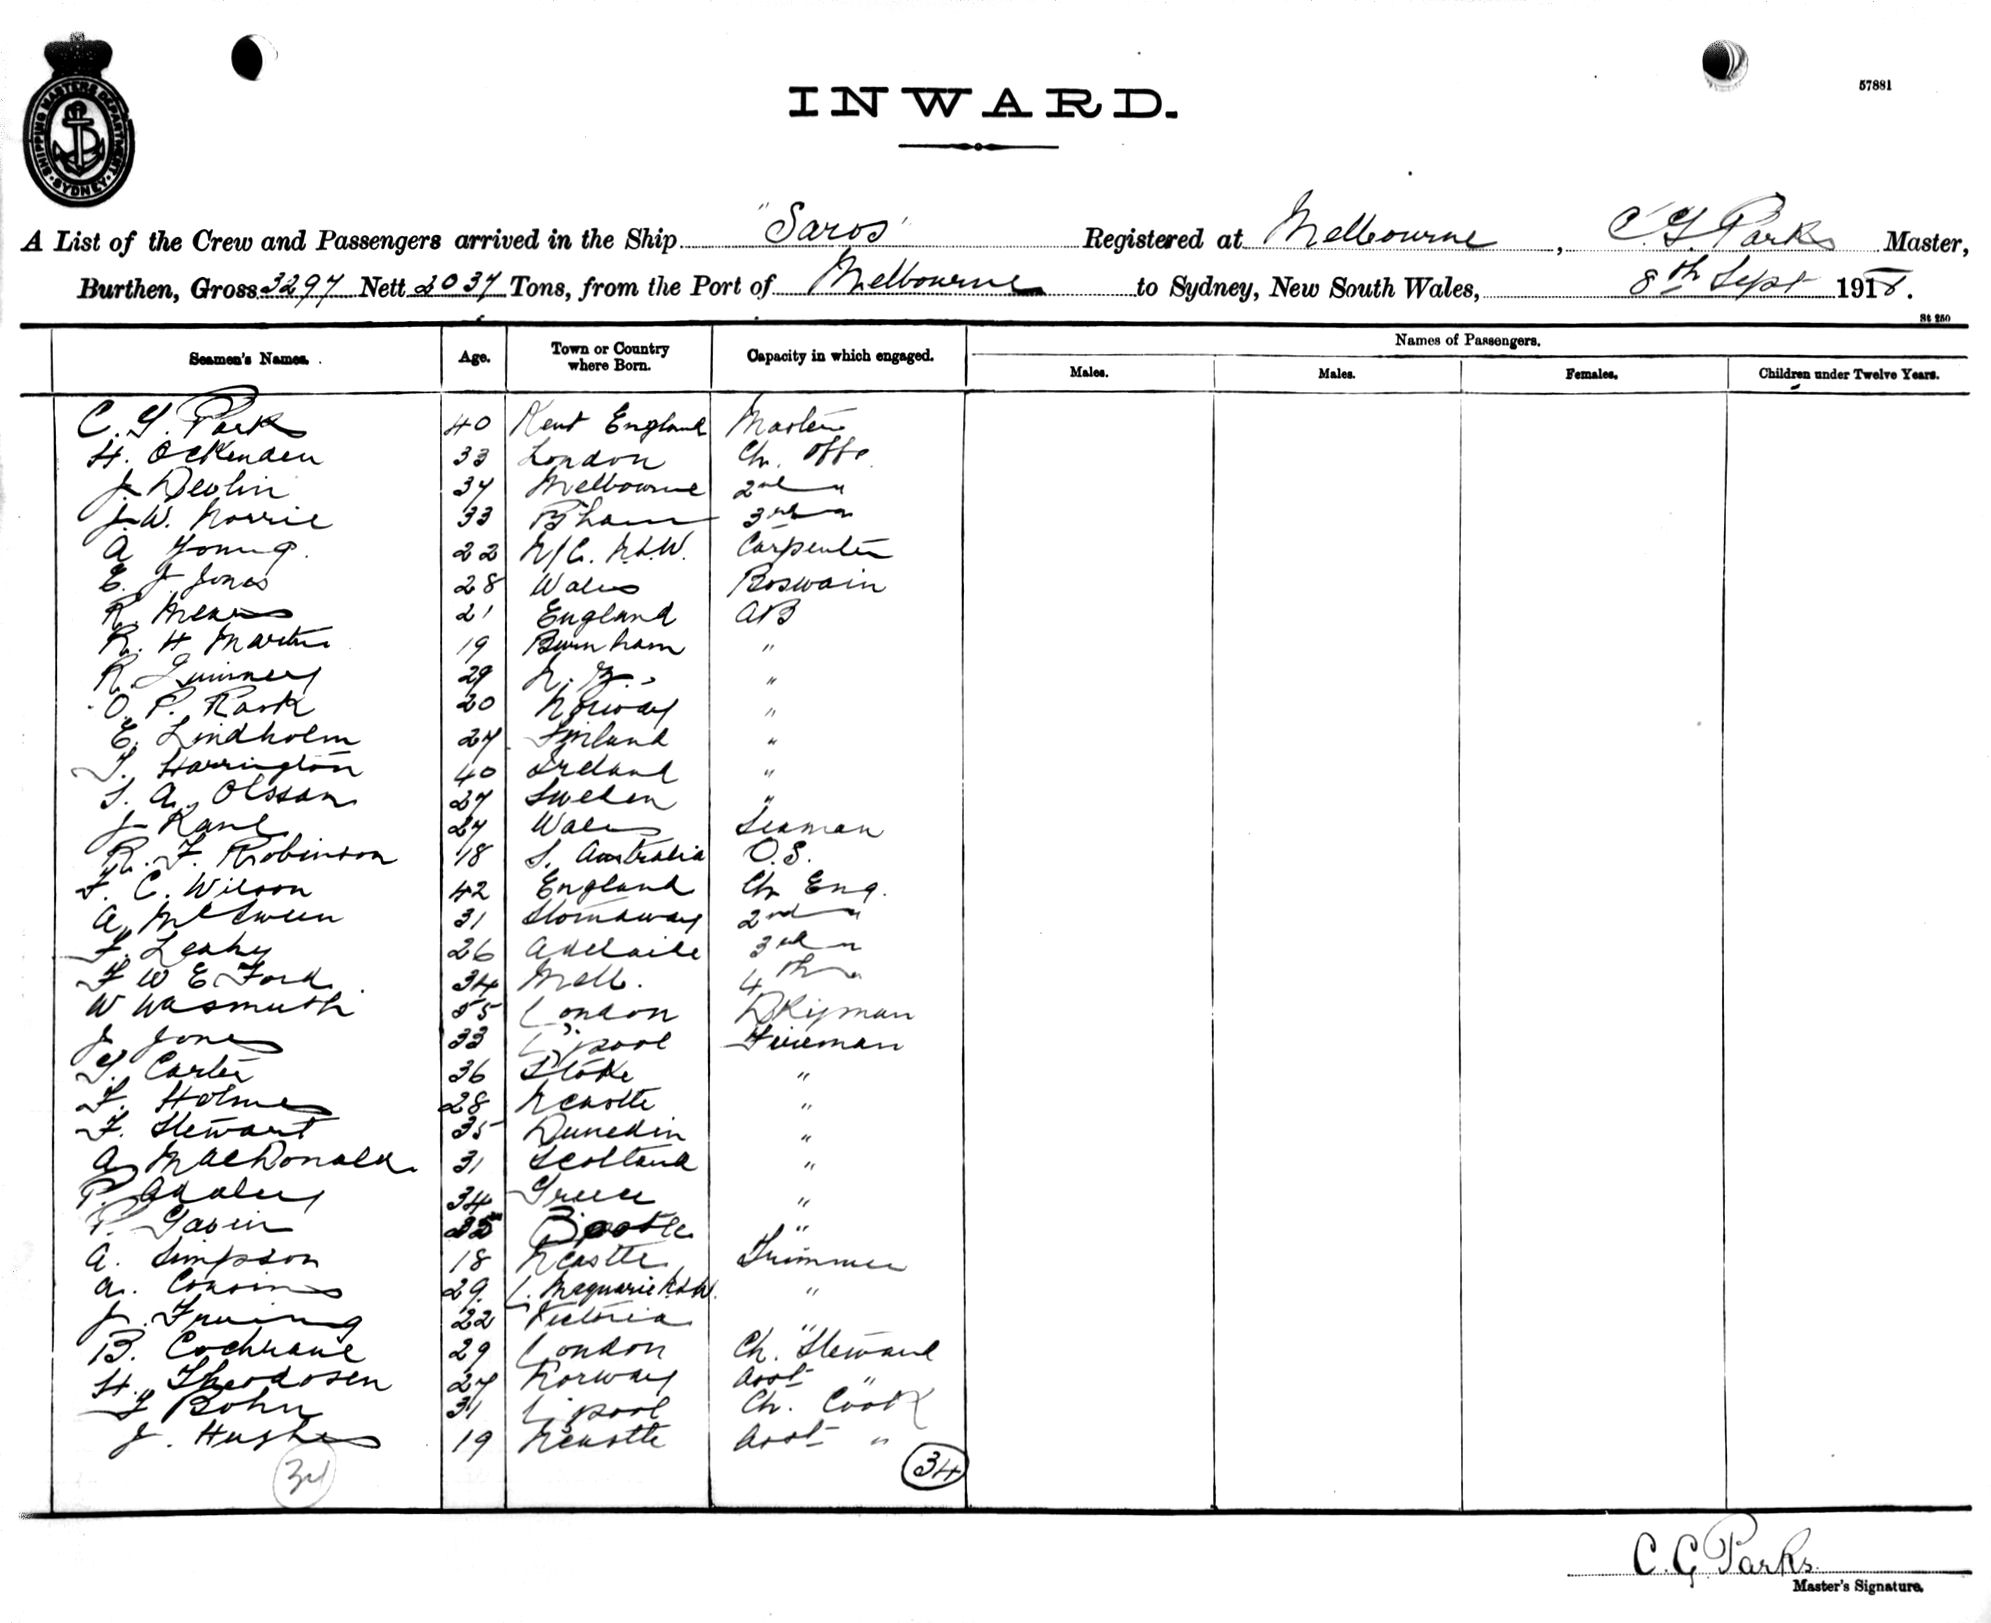 SHIPPING MASTERS DEPARTMENT SYDNEY
57881
INWARD.
A List of the Crew and Passengers arrived in the Ship "Saros" Registered at Melbourne, C. G. Parks Master,
Burthen, Gross 3297 Nett 2037 Tons, from the Port of Melbourne to Sydney, New South Wales, 8th Sept 1918.
St 250
Seamen's Names. Age. Town or Country where Born. Capacity in which engaged. Names of Passengers.
Males. Males. Females. Children under Twelve Years.
C. G. Parks 40 Kent England Master
H. Ockenden 33 London Ch. Offr
J. Devlin 37 Melbourne 2nd "
J. W. Norrie 33 B'ham 3rd "
A Young. 22 N/C. N.S.W. Carpenter
E. J. Jones 28 Wales Boswain
R. Mears 21 England AB
R. H Martin 19 Burnham "
R. 29 N. Z. "
O. P. Rask 20 Norway "
E. Lindholm 27 Finland "
T. Harrington 40 Ireland "
S. A. Olsson 27 Sweden "
J. Kane 27 Wales Seaman
R. F. Robinson 18 S. Australia O.S.
F. C. Wilson 42 England Ch Eng.
A. McSween 31 Stornaway 2nd "
F. Leahy 26 Adelaide 3rd "
F W E Ford 34 Melb. 4th "
W Wasmuth 55 London Dkyman
J Jones 33 L'pool Fireman
G. Carter 36 Stoke "
F. Holmes 28 Ncastle "
F. Stewart 35 Dunedin "
A. MacDonald. 31 Scotland "
P. 34 Greece "
P. Gavin 35 Bootle "
A. Simpson 18 Ncastle Trimmer
A. Cousins 29. L. Maquarie N.S.W. "
J. Irving 22 Victoria "
B. Cochrane 29 London Ch. Steward
H. Theodosen 27 Norway Asst "
F Bohn 31 L'pool Ch. Cook
J. Hughes 19 Ncastle Asst "
34
C. G. Parks.
Master's Signature.